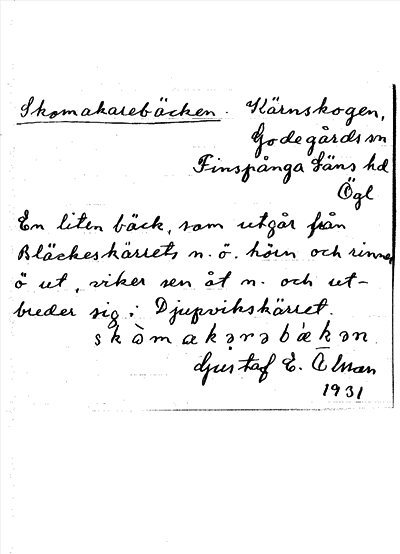 Skomakarebäcken. Kärnskogen,
Godegårds sn
Finspånga läns hd
Ögl
En liten bäck, som utgår från
Bläckeskärrets n. ö. hörn och rinner
ö ut, viker sen åt n. och ut-
breder sig i Djupvikskärret.
skòmakərəbɛ̀kən
Gustaf E. Olsson
1931